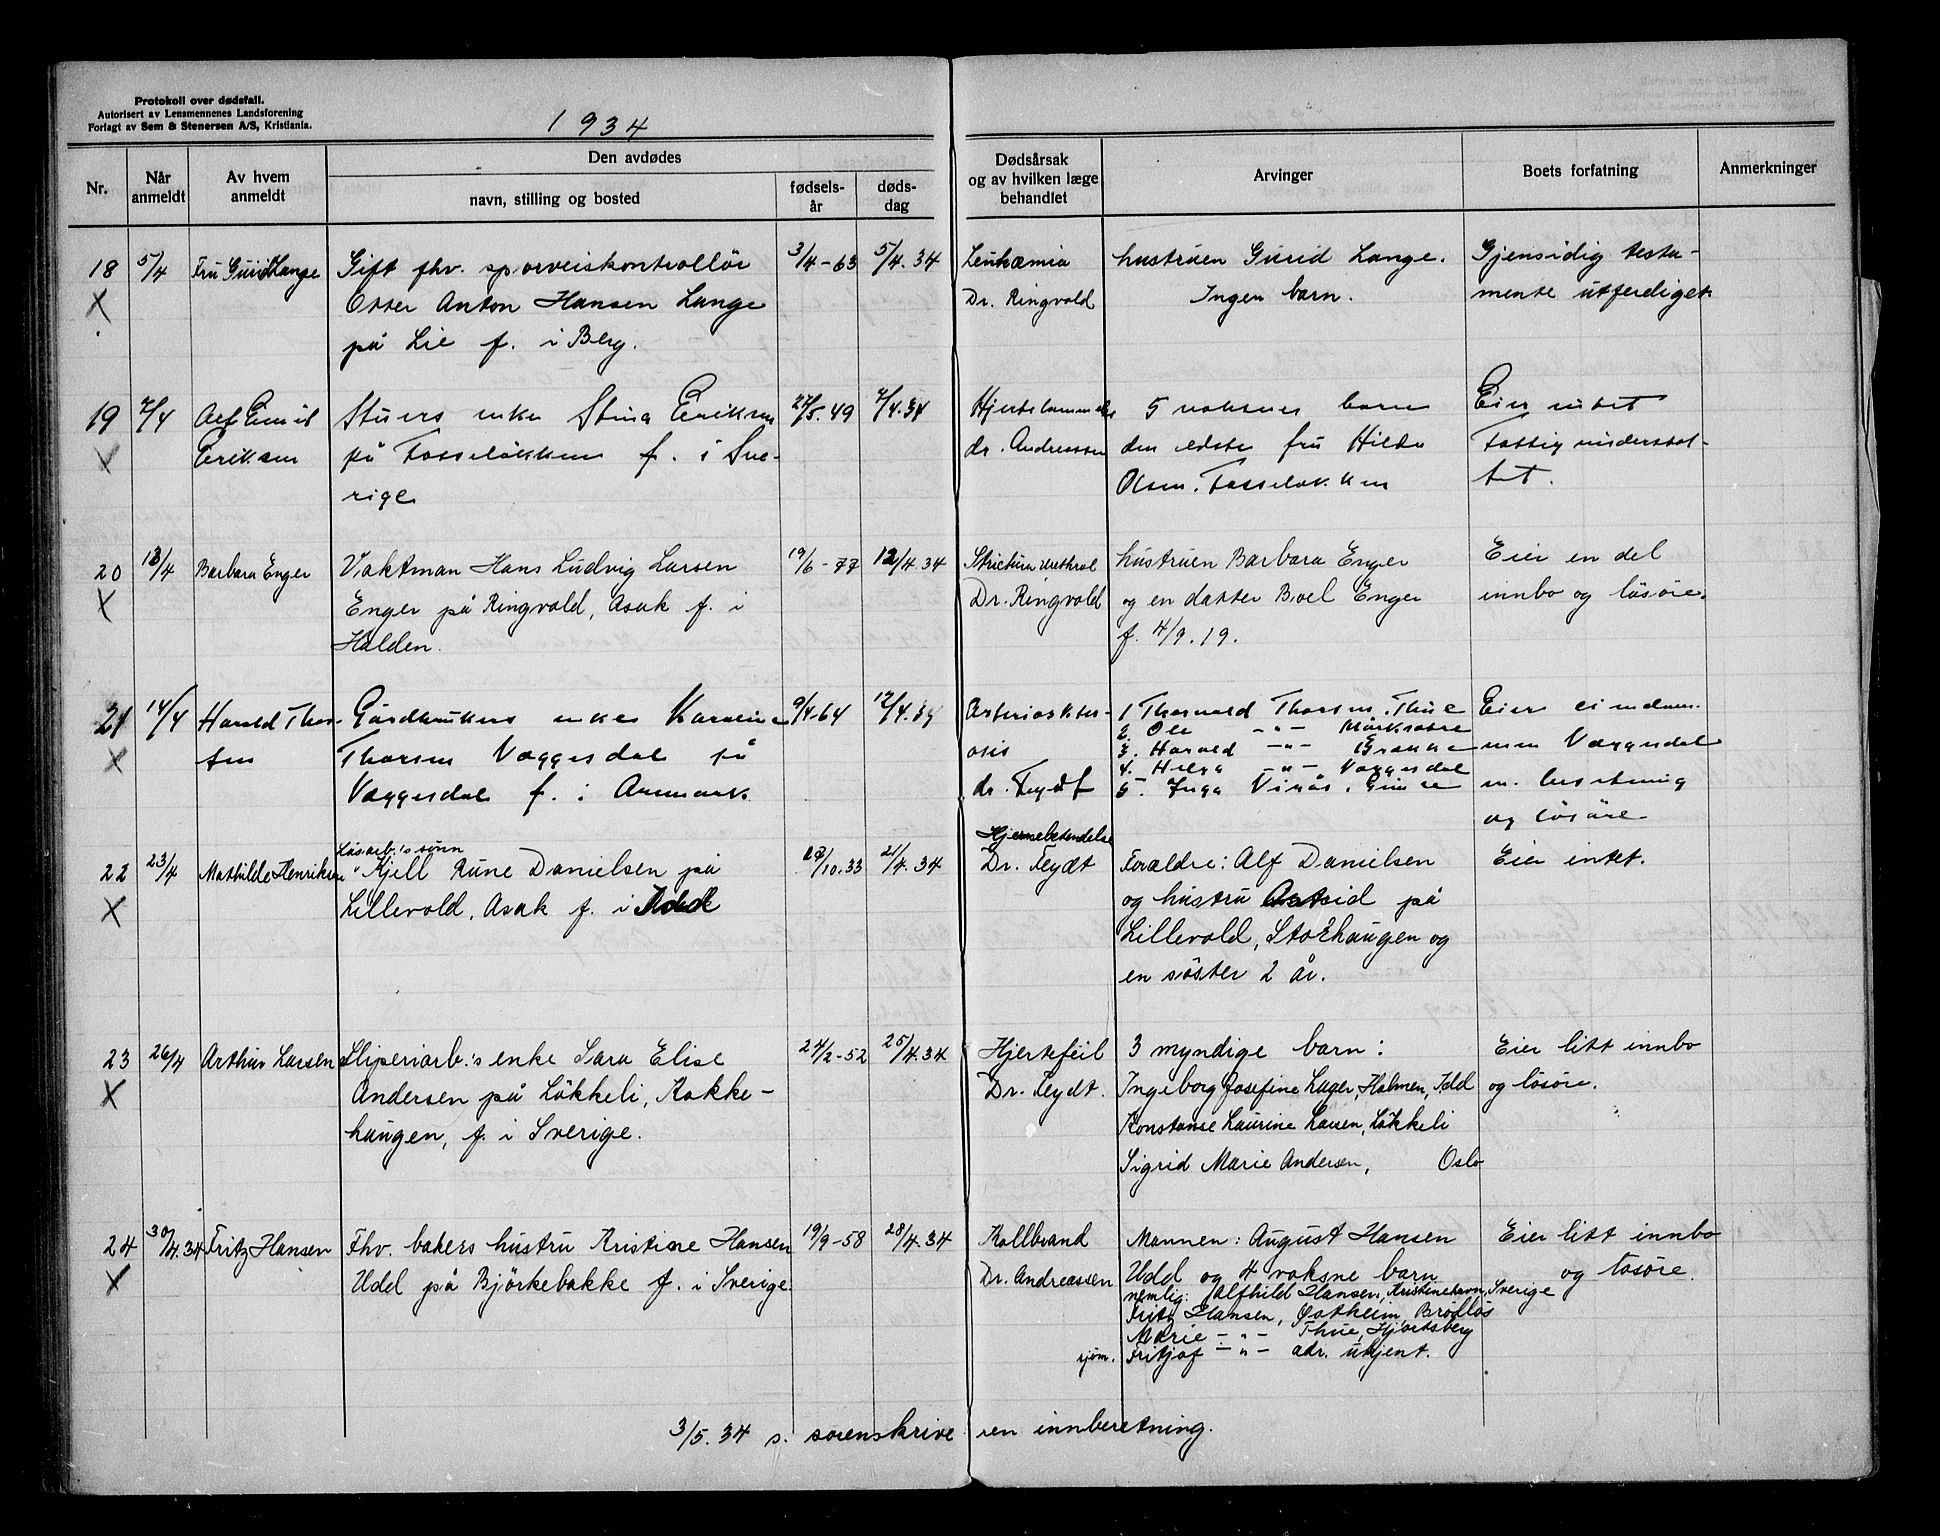 Protokoll over dødsfall.
Autorisert av Lensmennenes Landsforening
Forlagt av Sem & Stenersen A/S, Kristiania.
1934
Nr.
Når anmeldt
Av hvem anmeldt
Den avdødes
navn, stilling og bosted
fødsels-år
døds-dag
Dødsårsak og av hvilken læge behandlet
Arvinger
Boets forfatning
Anmerkninger
18 5/4 Fru Gurid Lange Gift fhv. sporveiskontrollör 3/4-63 5/4.34 Leukæmia hustruen Gurid Lange. Gjensidig testa-
X Otter Anton Hansen Lange Dr. Ringvold Ingen barn. mente utferdiget
på Lie f. i Berg.
19 7/4 Alf Emil Stuers enke Stina Eriksen 27/5.49 7/4.34 5 voksne barn Eier intet
X Eriksen på Fosseløkken f. i Sve- dr. Andreassen den eldste fru Hilda Fattigunderstøt-
rige Olsen. Fosseløkken tet.
20 13/4 Barbara Enger Vaktman Hans Ludvig Larsen 19/6-77 12/4.34 Strictura urethral hustruen Barbara Enger Eier en del
X Enger på Ringvold, Asak f. i Dr. Ringvold og en datter Boel Enger innbo og løsøre.
Halden. f. 4/9.19.
21 14/4 Harald Thor- Gårdbrukers enke Karoline 9/4-64 12/4.34 Arterioskler- 1 Thorvald Thorsen. Thue Eier eiendom-
2. Ole -"- Mörksætre
X sen Thorsen Væggesdal på osis 3. Harald -"- Brække men Væggesdal
4. Helga -"- Væggesdal
Væggesdal f. i Aremark dr. Feydt 5. Inga m. besetning
og løsøre
Løsarb.'s sønn Hjernebetendelse
22 23/4 Mathilde Henriksen Kjell Rune Danielsen på /10.33 21/4.34 Dr. Feydt Forældre: Alf Danielsen Eier intet.
X Lillevold, Asak f. i Idd og hustru Astrid på
Lillevold, Storhaugen og
en søster 2 år.
23 26/4 Arthur Larsen Sliperiarb.'s enke Sara Elise 24/2-52 25/4.34 Hjertefeil 3 myndige barn: Eier litt innbo
X Andersen på Lökkeli, Kokke- Dr. Feydt. Ingeborg Josefine Lager, Holmen, Idd og løsøre.
haugen, f. i Sverige. Konstanse Laurine Larsen, Lökkeli
Sigrid Marie Andersen, Oslo
24 30/4.34 Fritz Hansen Fhv. bakers hustru Kristine Hansen 19/9-58 28/4.34 Kollbrand Mannen: August Hansen Eier litt innbo
X Udd på Björkebakke f. i Sverige. Dr. Andreassen Udd og 4 voksne barn og løsøre.
nemlig: Alfhild Hansen, Kristinehavn, Sverige
Fritz Hansen, Østheim, Brödløs
Marie -"- Thue, Hjortsberg
sjøm. Fritjof -"- adr. ukjent.
3/5.34 s. sorenskriveren innberetning.